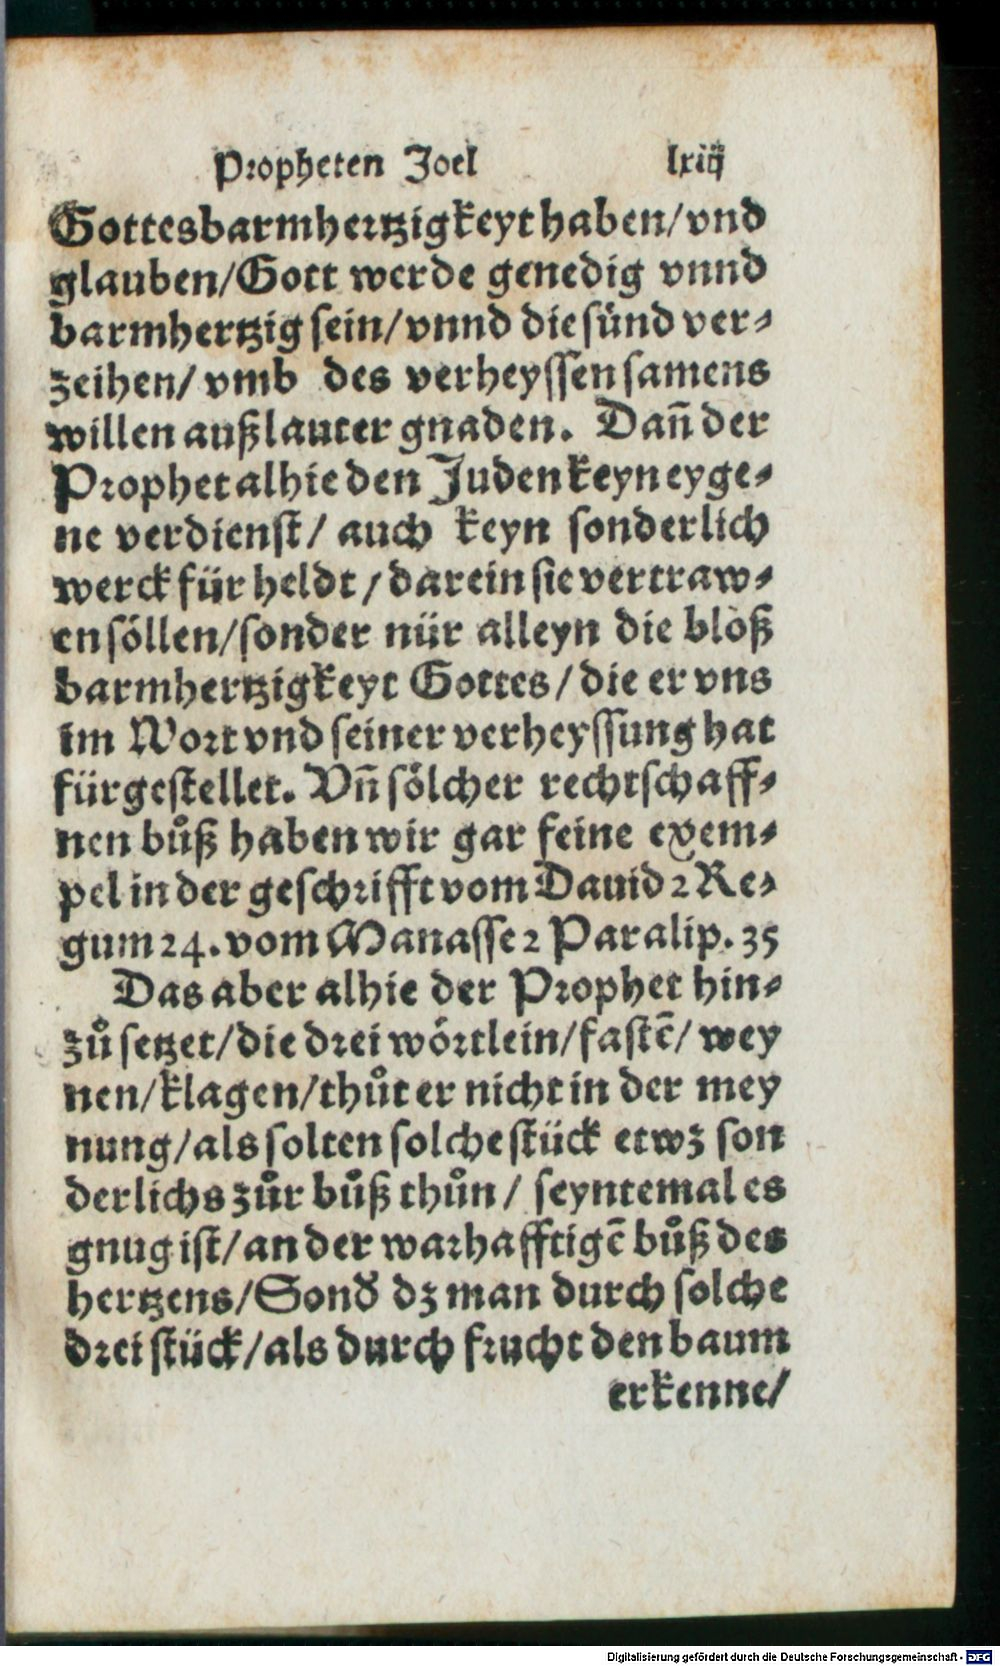 Propheten Joel lxiij
Gottes barmhertzigkeyt haben/ vnd
glauben/ Gott werde genedig vnnd
barmhertzig sein/ vnnd die sünd ver⸗
zeihen/ vmb des verheyssen samens
willen auß lauter gnaden. Dañ der
Prophet alhie den Juden keyn eyge⸗
ne verdienst/ auch keyn sonderlich
werck für heldt/ darein sie vertraw⸗
en söllen/ sonder nür alleyn die bloß
barmhertzigkeyt Gottes/ die er vns
im Wort vnd seiner verheyssung hat
fürgestellet. Vñ sölcher rechtschaff⸗
nen bůß haben wir gar feine exem⸗
pel in der geschrifft vom Dauid 2 Re⸗
gum 24. vom Manasse 2 Paralip. 35
Das aber alhie der Prophet hin⸗
zů setzet/ die drei wörtlein/ fastẽ/ wey
nen/ klagen/ thůt er nicht in der mey
nung/ als solten solche stück etwz son
derlichs zůr bůß thůn/ seyntemal es
gnug ist/ an der warhafftigẽ bůß des
hertzens/ Sonď dz man durch solche
drei stück/ als durch frucht den baum
erkenne/
Digitalisierung gefördert durch die Deutsche Forschungsgemeinschaft - DFG